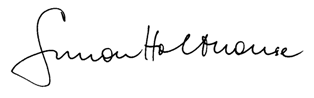 Simon Holthouse